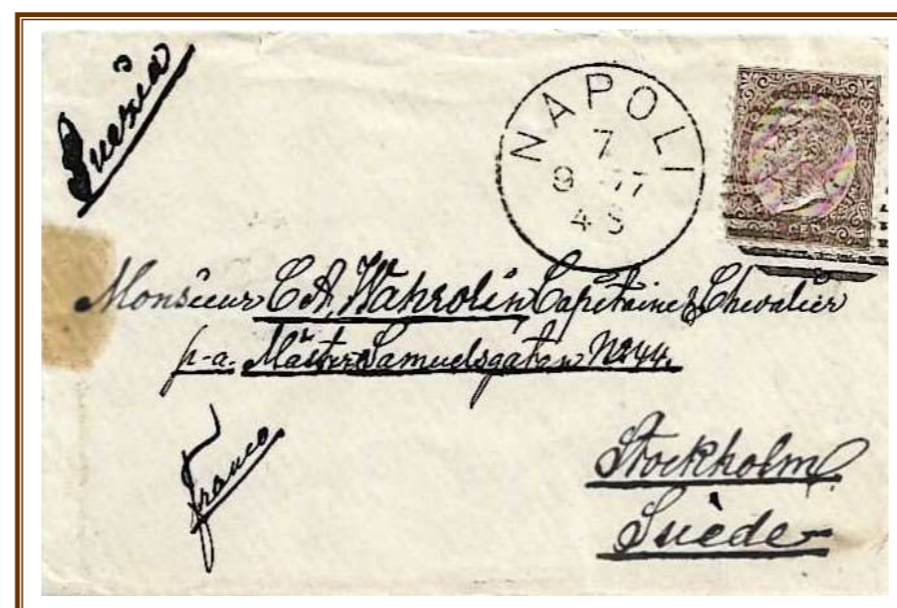 Suezia
NAPOLI
7
9 77
4 S
Monsieur C. A. Wahrolin Capitaine & Chevalier
p-a. Mäster Samuelsgatan No 44.
Franco
Stockholm.
Suède